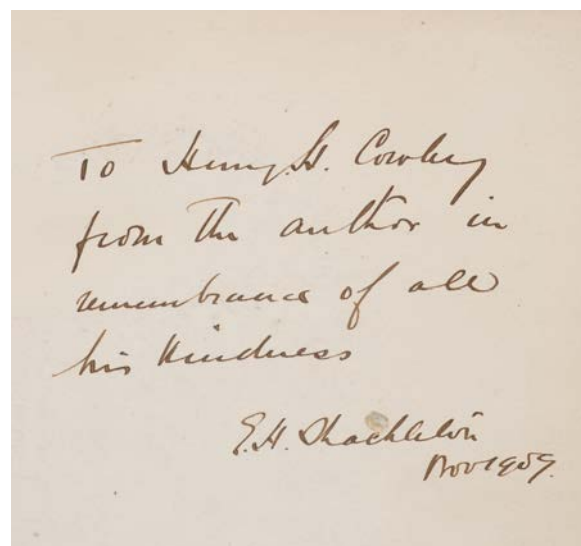 To Henry. H. Cowley
from the author in
remembrance of all
his kindness
E.H. Shackleton
Nov 1909.